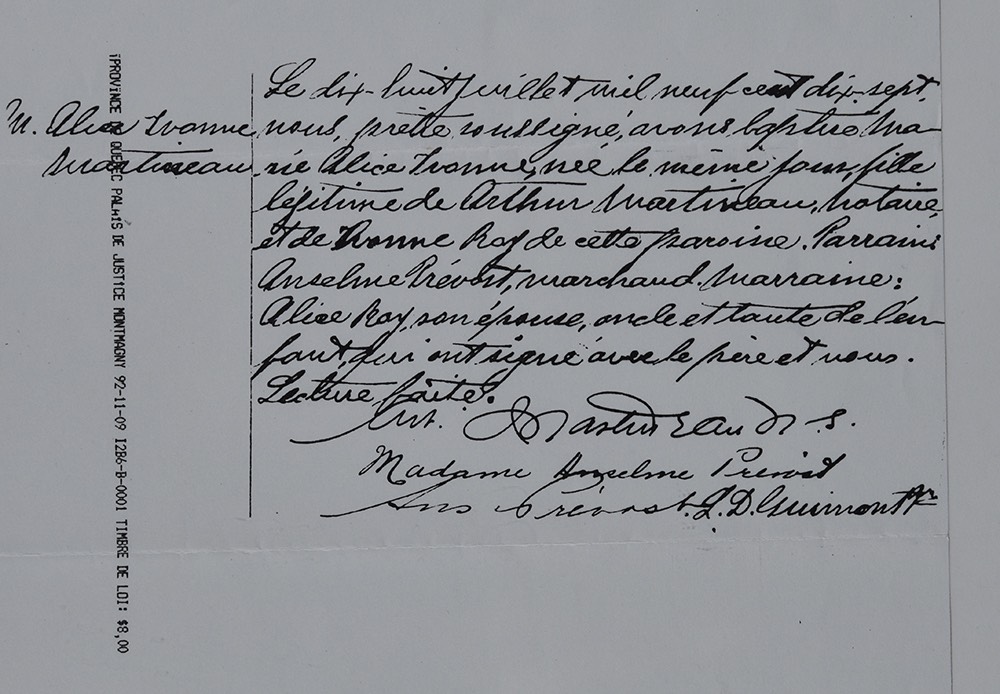 Le dix-huit juillet mil neuf cent dix-sept,
M. Alice Ivonne
Martineau.
nous, prêtre soussigné, avons baptisé Ma-
rie Alice Ivonne, née le même jour, fille
légitime de Arthur Martineau, notaire,
et de Ivonne Roy de cette paroisse. Parrain:
Anselme Prévost, marchand. Marraine:
Alice Roy, son épouse, oncle et tante de l'en-
fant, qui ont signé avec le père et nous.
Lecture faite.
Art. Martineau N.-S.
Madame Anselme Prévost
Ans Prévost. L. D. Guimont Ptr
iPROVINCE DE QUEBEC PALAIS DE JUSTICE MONTMAGNY 92-11-09 12B6-B-0001 TIMBRE DE LOI: $8,00